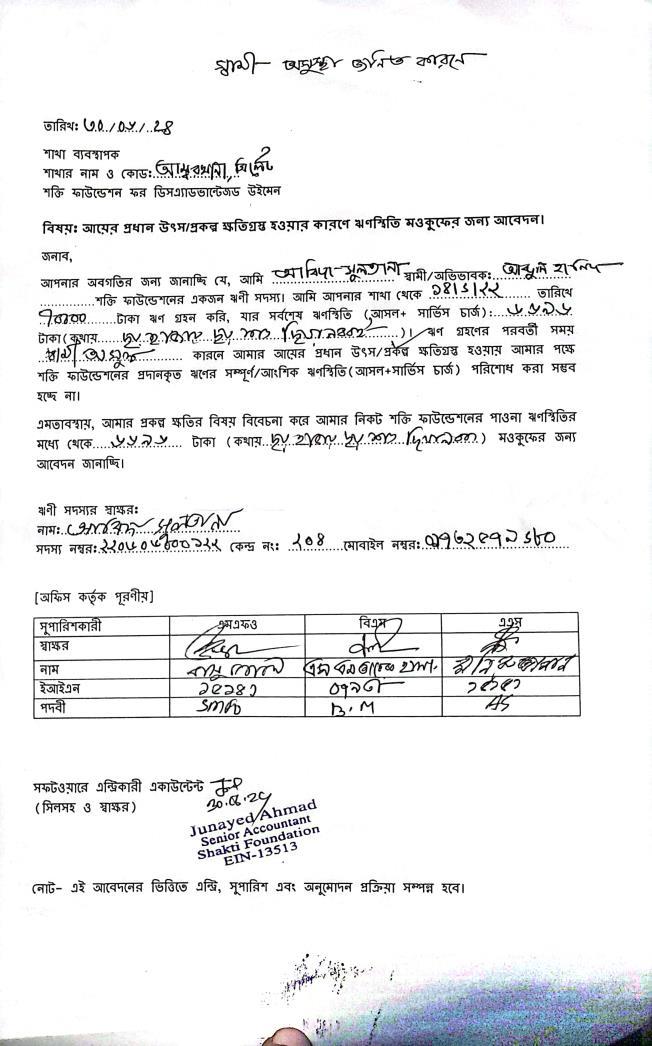 স্বামী অসুস্থ জনিত কারনে
তারিখ: ৩০/০৬/২৪
শাখা ব্যবস্থাপক
শাখার নাম ও কোড: আম্বরখানা, সিলেট
শক্তি ফাউন্ডেশন ফর ডিসএ্যাডভান্টেজড উইমেন
বিষয়: আয়ের প্রধান উৎস/প্রকল্প ক্ষতিগ্রস্থ হওয়ার কারণে ঋণস্থিতি মওকুফের জন্য আবেদন।
জনাব,
আপনার অবগতির জন্য জানাচ্ছি যে, আমি সুলতানা স্বামী/অভিভাবক:
শক্তি ফাউন্ডেশনের একজন ঋণী সদস্য। আমি আপনার শাখা থেকে তারিখে
টাকা ঋণ গ্রহন করি, যার সর্বশেষ ঋণস্থিতি (আসল+ সার্ভিস চার্জ):
টাকা (কথায় দুই হাজার দুই শত)। ঋণ গ্রহণের পরবর্তী সময়
স্বামী অসুস্থ কারনে আমার আয়ের প্রধান উৎস/প্রকল্প ক্ষতিগ্রস্থ হওয়ায় আমার পক্ষে
শক্তি ফাউন্ডেশনের প্রদানকৃত ঋণের সম্পূর্ণ/আংশিক ঋণস্থিতি (আসল+সার্ভিস চার্জ) পরিশোধ করা সম্ভব
হচ্ছে না।
এমতাবস্থায়, আমার প্রকল্প ক্ষতির বিষয় বিবেচনা করে আমার নিকট শক্তি ফাউন্ডেশনের পাওনা ঋণস্থিতির
মধ্যে থেকে টাকা (কথায় দুই হাজার দুই শত) মওকুফের জন্য
আবেদন জানাচ্ছি।
ঋণী সদস্যর স্বাক্ষর:
নাম: সুলতানা
সদস্য নম্বর: কেন্দ্র নং: ২০৪ মোবাইল নম্বর:
[অফিস কর্তৃক পূরণীয়]
সুপারিশকারী এমএফও বিএম এএস
স্বাক্ষর
নাম
ইআইএন
পদবী SMFO B.M AS
সফটওয়ারে এন্ট্রিকারী একাউন্টেন্ট
(সিলসহ ও স্বাক্ষর) 30.06.24
Junayed Ahmad
Senior Accountant
Shakti Foundation
EIN-13513
নোট- এই আবেদনের ভিত্তিতে এন্ট্রি, সুপারিশ এবং অনুমোদন প্রক্রিয়া সম্পন্ন হবে।